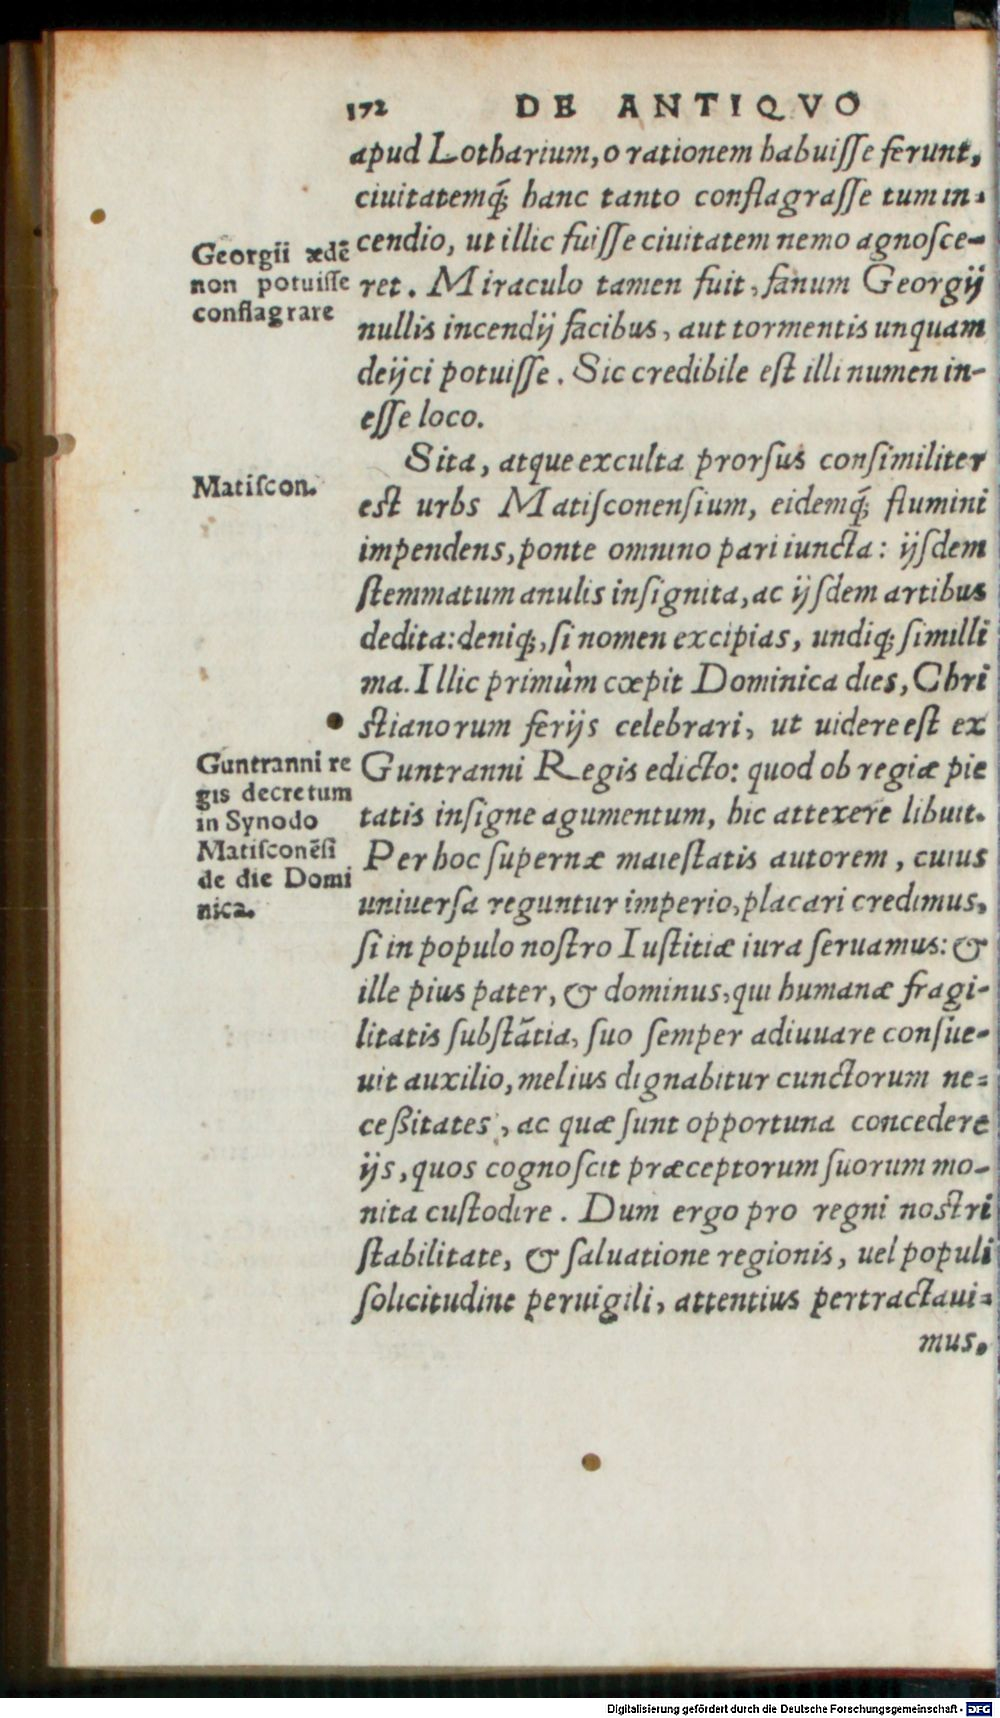 172 DE ANTIQVO
apud Lotharium, orationem habuisse ferunt,
ciuitatemq́; hanc tanto conflagrasse tum in-
cendio, ut illic fuisse ciuitatem nemo agnosce-
ret. Miraculo tamen fuit, fanum Georgij
nullis incendij facibus, aut tormentis unquam
deijci potuisse. Sic credibile est illi numen in-
esse loco.
Georgii ædẽ
non potuisse
conflagrare
Sita, atque exculta prorsus consimiliter
est urbs Matisconensium, eidemq́; flumini
impendens, ponte omnino pari iuncta: ijsdem
stemmatum anulis insignita, ac ijsdem artibus
dedita: deniq;, si nomen excipias, undiq; simili
ma. Illic primùm cœpit Dominica dies, Chri
stianorum ferijs celebrari, ut uidere est ex
Guntranni Regis edicto: quod ob regiæ pie
tatis insigne agumentum, hic attexere libuit.
Per hoc supernæ maiestatis autorem, cuius
uniuersa reguntur imperio, placari credimus,
si in populo nostro Iustitiæ iura seruamus: &
ille pius pater, & dominus, qui humanæ fragi-
litatis substãtia, suo semper adiuuare consue-
uit auxilio, melius dignabitur cunctorum ne-
ceßitates, ac quæ sunt opportuna concedere
ijs, quos cognoscit præceptorum suorum mo-
nita custodire. Dum ergo pro regni nostri
stabilitate, & saluatione regionis, uel populi
solicitudine peruigili, attentius pertractaui-
mus.
Matiscon.
Guntranni re
gis decretum
in Synodo
Matisconẽsi
de die Domi
nica.
Digitalisierung gefördert durch die Deutsche Forschungsgemeinschaft - DFG